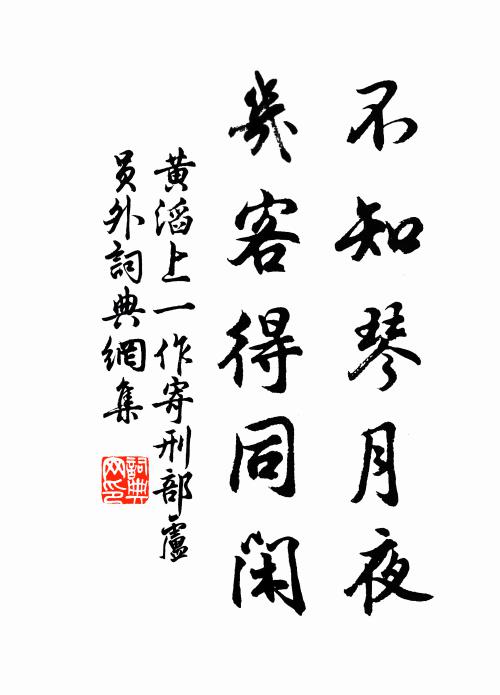 不知琴月夜
幾客得同閑
黄滔上一作寄刑部盧
員外詞典網集
詞典
网印